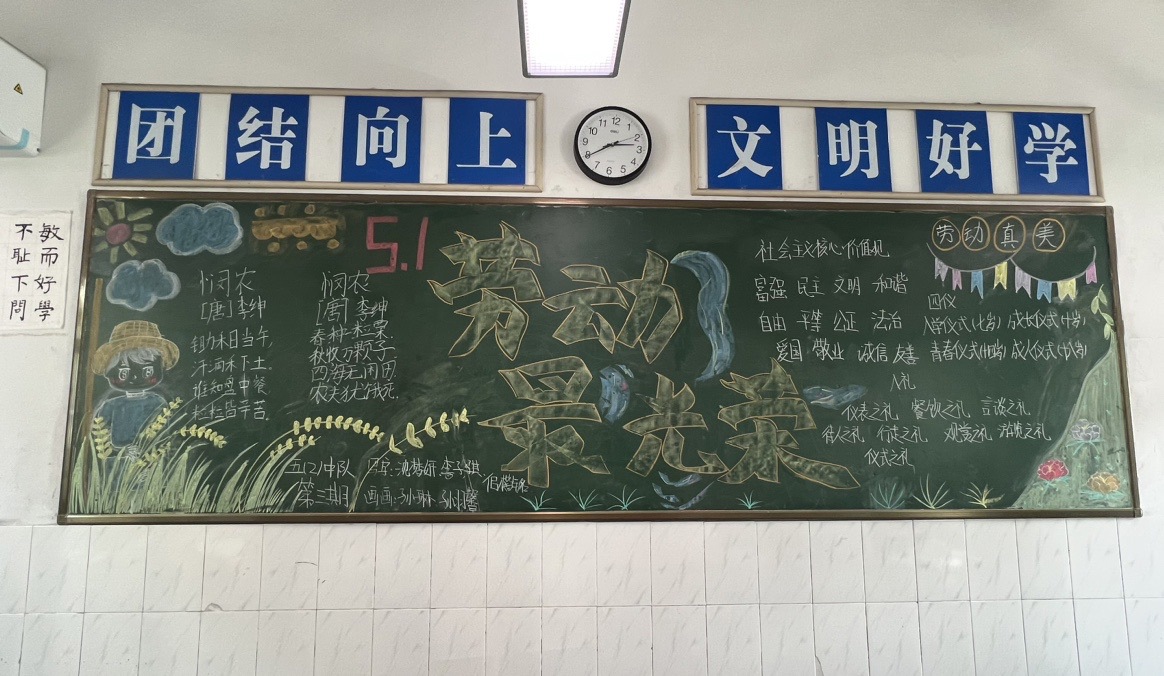 团结向上
文明好学
敏而好學
不耻下問
12
1
2
3
4
5
6
7
8
9
10
11
5.1
劳动
最光荣
悯农
[唐]李绅
锄禾日当午,
汗滴禾下土。
谁知盘中餐
粒粒皆辛苦.
悯农
[唐]李绅
春种一粒粟.
秋收万颗子
四海无闲田
农夫犹饿死.
五(2)中队
第三期
画画:孙
社会主义核心价值观
富强 民主 文明 和谐
自由 平等 公正 法治
爱国 敬业 诚信 友善
劳动真美
四仪
入学仪式(七岁) 成长仪式(十岁)
青春仪式(十四岁) 成人仪式(十八岁)
八礼
仪表之礼 餐饮之礼 言谈之礼
待人之礼 行走之礼 观赏之礼 游览之礼
仪式之礼